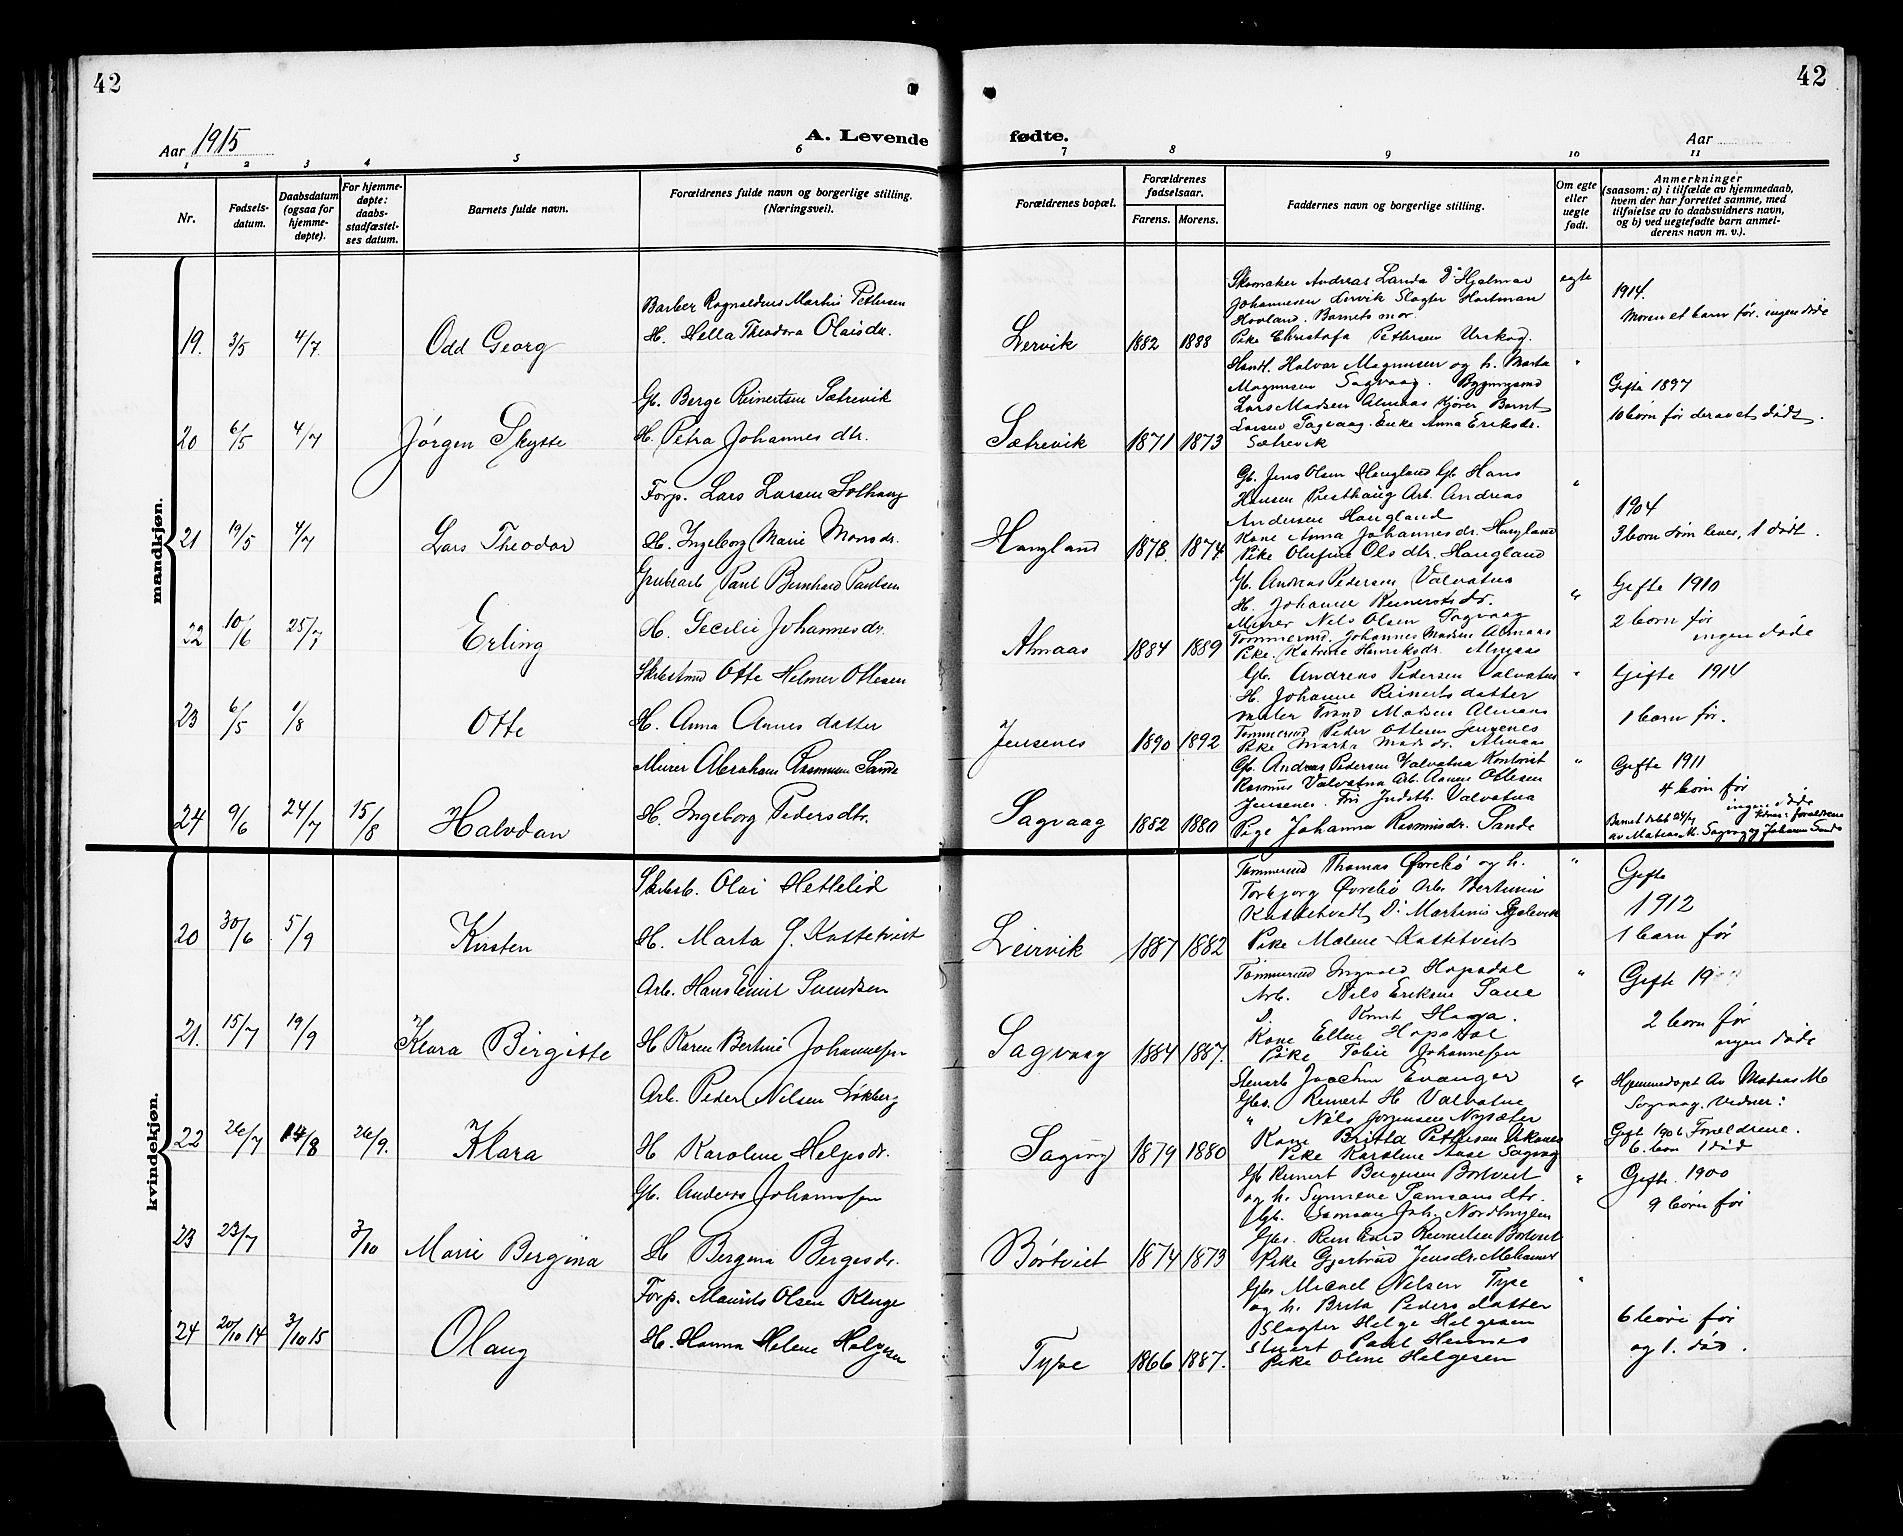 42
42
Aar 1915
A. Levende
fødte.
Aar
1 2 3 4 5 6 7 8 9 10 11
Nr.
Fødsels-
datum.
Daabsdatum
(ogsaa for
hjemme-
døpte).
For hjemme-
døpte:
daabs-
stadfæstel-
ses datum.
Barnets fulde navn.
Forældrenes fulde navn og borgerlige stilling.
(Næringsvei).
Forældrenes bopæl.
Forældrenes
fødselsaar.
Farens. Morens.
Faddernes navn og borgerlige stilling.
Om egte
eller
uegte
født.
Anmerkninger
(saasom: a) i tilfælde av hjemmedaab,
hvem der har forrettet samme, med
tilføielse av to daabsvidners navn,
og b) ved uegtefødte barn anmel-
derens navn m. v.).
mandkjøn.
19. 3/5 4/7 Odd Georg
Barber Rognaldius Martin Pettersen
H. Hella Theodora Olaisdr.
Lervik 1882 1888
Skomaker Andreas Landa D: Hjalmar
Johannesen Lervik Slagter Hartman
Hovland. Barnets mor.
Pike Christofa Pettersen Urskog.
egte
1914.
Moren et barn før. ingen døde
20 6/5 4/7 Jørgen Skytte
Gb. Berge Reinertsen Sætrevik
H. Petra Johannes dtr.
Sætrevik 1871 1873
Handl. Halvor Magnussen og h. Marta
Magnussen Sagvaag.
Lars Madsen Almaas
Larsen Sagvaag. Enke Anna Eriksdr.
Sætrevik
"
Gifte 1897
10 børn før derav et dødt.
21 19/5 4/7 Lars Theodor
Forp. Lars Larsen Solhaug
H. Ingeborg Marie Monsdr.
Haugland 1878. 1874
Gb. Jens Olsen Haugland Gb. Hans
Hansen Presthaug Arb. Andreas
Andersen Haugland
Kone Anna Johannesdr. Haugland
Pike Olufine Olsdtr. Haugland
"
1904
3 børn som lever, 1 dødt.
22 10/6 25/7 Erling
Grubearb Paul Bernhard Paulsen
H. Cecilie Johannesdr.
Almaas 1884 1889
Gb. Andreas Pedersen Valvatna
H. Johanne Reinertsdr.
Murer Nils Olsen Sagvaag
Tømmermd. Johannes Madsen Almaas
Pike. Katrine Henriksdr. Almaas
"
Gifte 1910
2 børn før
ingen døde
23 6/5 1/8 Otte
Otte Helmer Ottesen
H. Anna Aanes datter
Jensenes 1890 1892
Gb. Andreas Pedersen Valvatna
H. Johanne Reinerts datter
Maler Trond Madsen Almaas
Tømmermd Peder Ottesen Jensenes
Pike Marta Mads dr. Almaas
"
Gifte 1914
1 barn før.
24 9/6 24/7 15/8 Halvdan
Murer Abraham Rasmussen Sande
H. Ingeborg Pedersdtr.
Sagvaag 1882 1880
Gb. Andreas Pedersen Valvatna
Rasmus Valvatna Arb. Aanen Ottesen
Jensenes. Frk Judith Valvatna
Pige Johanna Rasmusdr. Sande
"
Gifte 1911
4 børn før
ingen døde
Barnet døbt 24/7
av Matias M. Sagvaag
kvindekjøn.
20 30/6 5/9 Kirsten
Olai Hetlelid
H. Marta G. Kattetveit
Leirvik 1887 1882
Tømmermd Thomas Øvrebø og h.
Torbjørg Øvrebø Arb. Bertinius
Kattetvedt, D: Martinis
Pike Malene Kattetveit
"
Gifte
1912
1 barn før
21. 15/7 19/9 Klara Birgitte
Arb. Hans Emil Svendsen
H Karen Bertine Johannessen
Sagvaag 1884 1887.
Tømmermd Ingvald Hopsdal
Arb. Nils Eriksen Sane
D. Knut Haga.
Kone Ellen Hopsdal
Pike Tobie Johannessen
"
Gifte 19
2 børn før
ingen døde
22 26/7 14/8 26/9. Klara
Arb. Peder Nilsen Løkberg
H Karoline Helgesdr.
Sagvg 1879 1880
Stenarb Joachim Evanger
Gbr. Reinert H Valvatne
" Nils Jørgensen Nysæter
Kone Britta Pettersen
Pike Karoline Aase Sagvag
"
Hjemmedøpt Av Matias M
Sagvaag. Vidner:
Gift 1906 Foreldrene.
6. børn 1 død
23 23/7 3/10 Marie Bergina
Gb. Anders Johannessen
H Bergina Bergesdr.
Børtveit 1874 1873
Gb Reinert Bergesen Børtveit
og h. Synneve Samsons dtr.
Gb. Samson Joh. Nordhuglen
Gbr. Reinhard Reinertsen Børtveit
Pike Gjertrud Jensdr.
"
Gifte. 1900
9 børn før
24 20/10 14 3/10 15 Olaug
Forp. Maurits Olsen Kluge
H. Hanna Helene Helgesen
Type 1866 1887.
Gbr Micael Nilsen Type
og h. Brita Peders datter
Slagter Helge Helgesen
Stuert Paul Hennes
Pike Oline Helgesen
"
6 børn før
og 1. død.